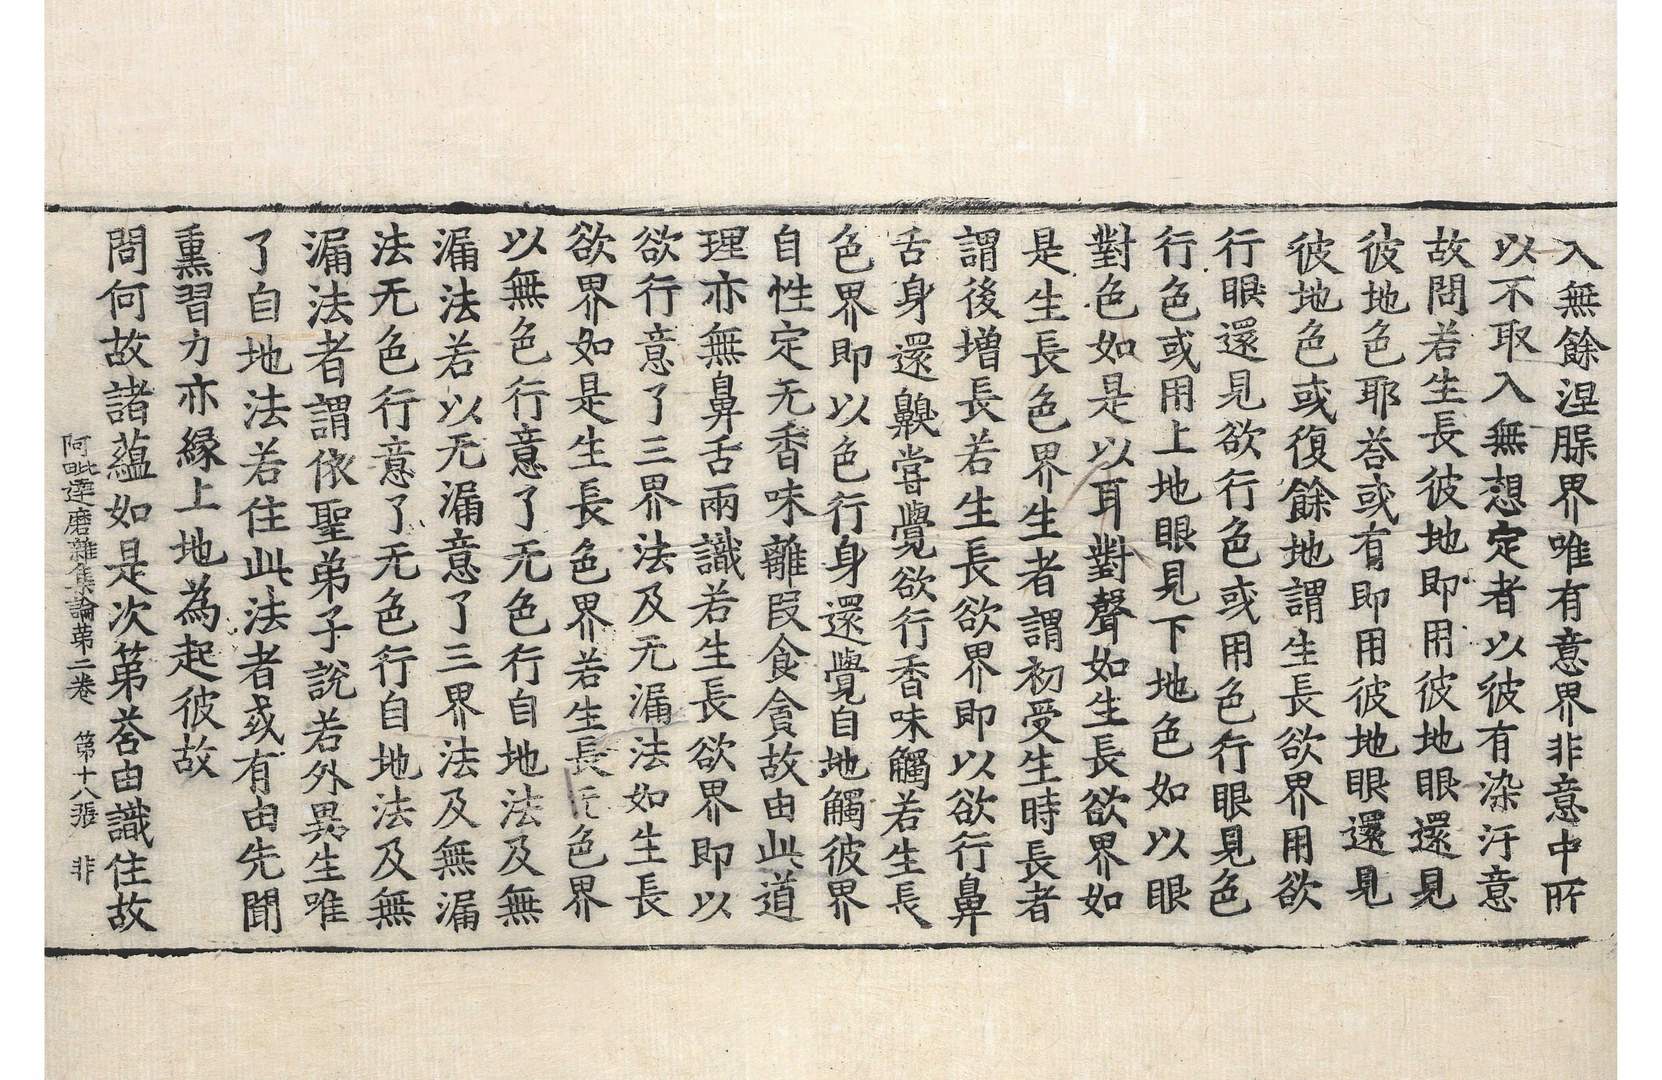 入無餘涅脲界唯有意界非意中所
以不取入無想定者以彼有染汙意
故問若生長彼地即用彼地眼還見
彼地色耶荅或有即用彼地眼還見
彼地色或復餘地謂生長欲界用欲
行眼還見欲行色或用色行眼見色
行色或用上地眼見下地色如以眼
對色如是以耳對聲如生長欲界如
是生長色界生者謂初受生時長者
謂後增長若生長欲界即以欲行鼻
舌身還齅甞覺欲行香味觸若生長
色界即以色行身還覺自地觸彼界
自性定无香味離段食貪故由此道
理亦無鼻舌兩識若生長欲界即以
欲行意了三界法及无漏法如生長
欲界如是生長色界若生長无色界
以無色行意了无色行自地法及無
漏法若以无漏意了三界法及無漏
法无色行意了无色行自地法及無
漏法者謂依聖弟子說若外異生唯
了自地法若住此法者或有由先聞
熏習力亦緣上地為起彼故
問何故諸蘊如是次第荅由識住故
阿毗達磨雜集論第二卷 第十八張 非